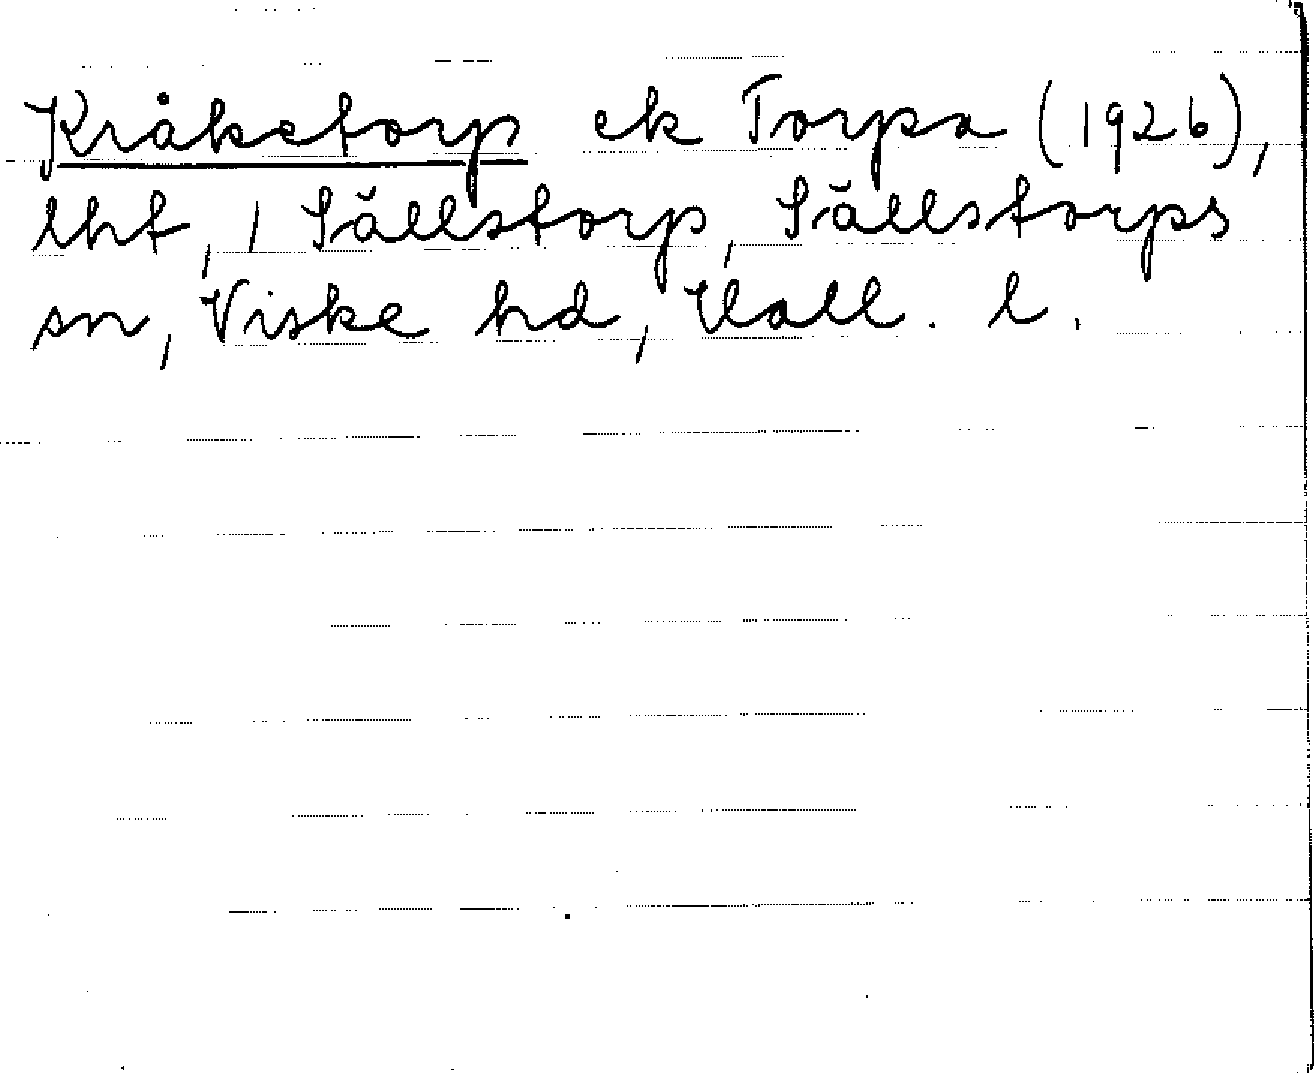 Kråketorp ek Torpa (1926),
lht, 1 Sällstorp, Sällstorps
sn, Viske hd, Hall. l.